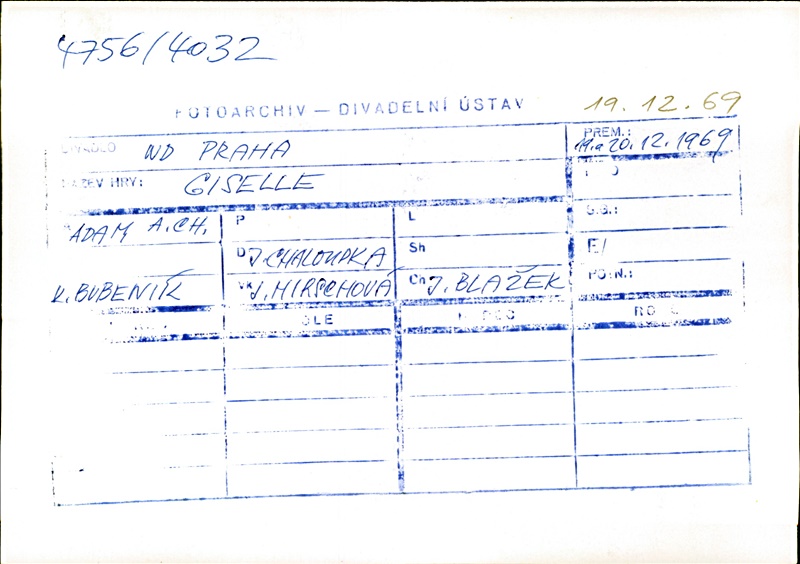 4756/4032
FOTOARCHIV — DIVADELNÍ ÚSTAV
19. 12. 69
DIVADLO ND PRAHA
PREM.:
19. a 20. 12. 1969
NÁZEV HRY: GISELLE
ADAM A. CH.
P
L
D J. CHALOUPKA
Sh
E/
K. BUBENÍK
Vk J. HIRSCHOVÁ
Ch J. BLAŽEK